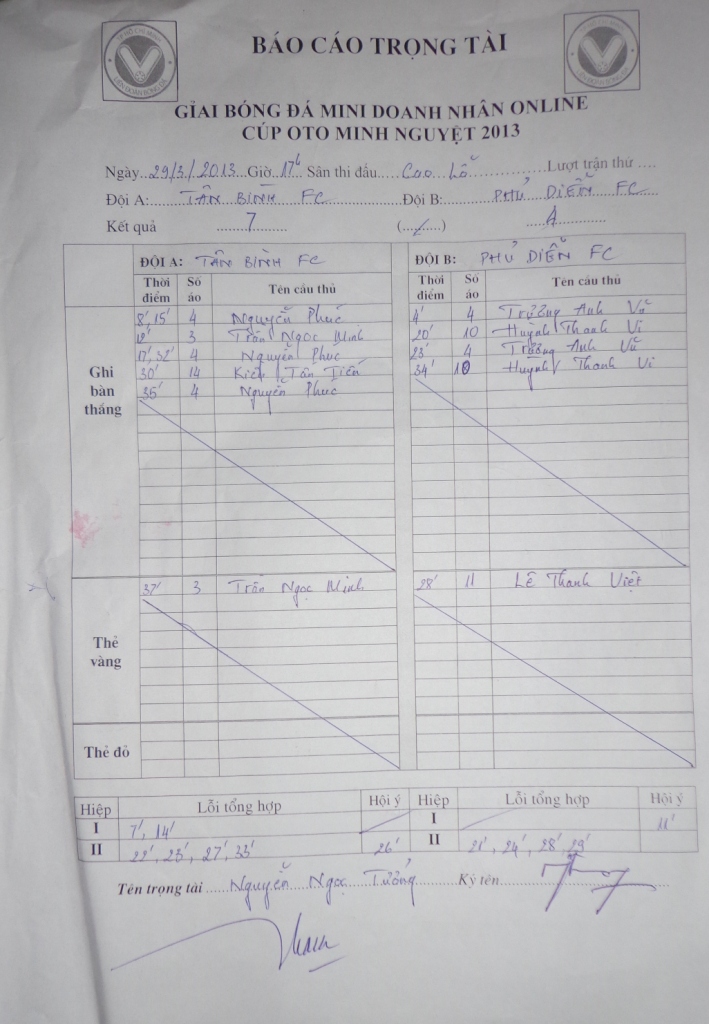 BÁO CÁO TRỌNG TÀI
GIẢI BÓNG ĐÁ MINI DOANH NHÂN ONLINE
CÚP OTO MINH NGUYỆT 2013
Ngày 29/3/2013 Giờ 17h Sân thi đấu Cao Lỗ Lượt trận thứ
Đội A: TÂN BÌNH FC Đội B: PHÚ DIỄN FC
Kết quả 7 (/) 4
ĐỘI A: TÂN BÌNH FC ĐỘI B: PHÚ DIỄN FC
Thời điểm Số áo Tên cầu thủ Thời điểm Số áo Tên cầu thủ
Ghi bàn thắng
8' 15' 4 Nguyễn Phúc 4' 4 Trương Anh Vũ
12' 3 Trần Ngọc Minh 20' 10 Huỳnh Thanh Vi
17', 32' 4 Nguyễn Phúc 23' 4 Trương Anh Vũ
30' 14 Kiều Tân Tiến 34' 10 Huỳnh Thanh Vi
35' 4 Nguyễn Phúc
Thẻ vàng
37' 3 Trần Ngọc Minh 28' 11 Lê Thanh Việt
Thẻ đỏ
Hiệp Lỗi tổng hợp Hội ý Hiệp Lỗi tổng hợp Hội ý
I 7', 14' I 11'
II 22', 25', 27', 33' 26' II 21', 24', 28', 29'
Tên trọng tài Nguyễn Ngọc Tưởng Ký tên